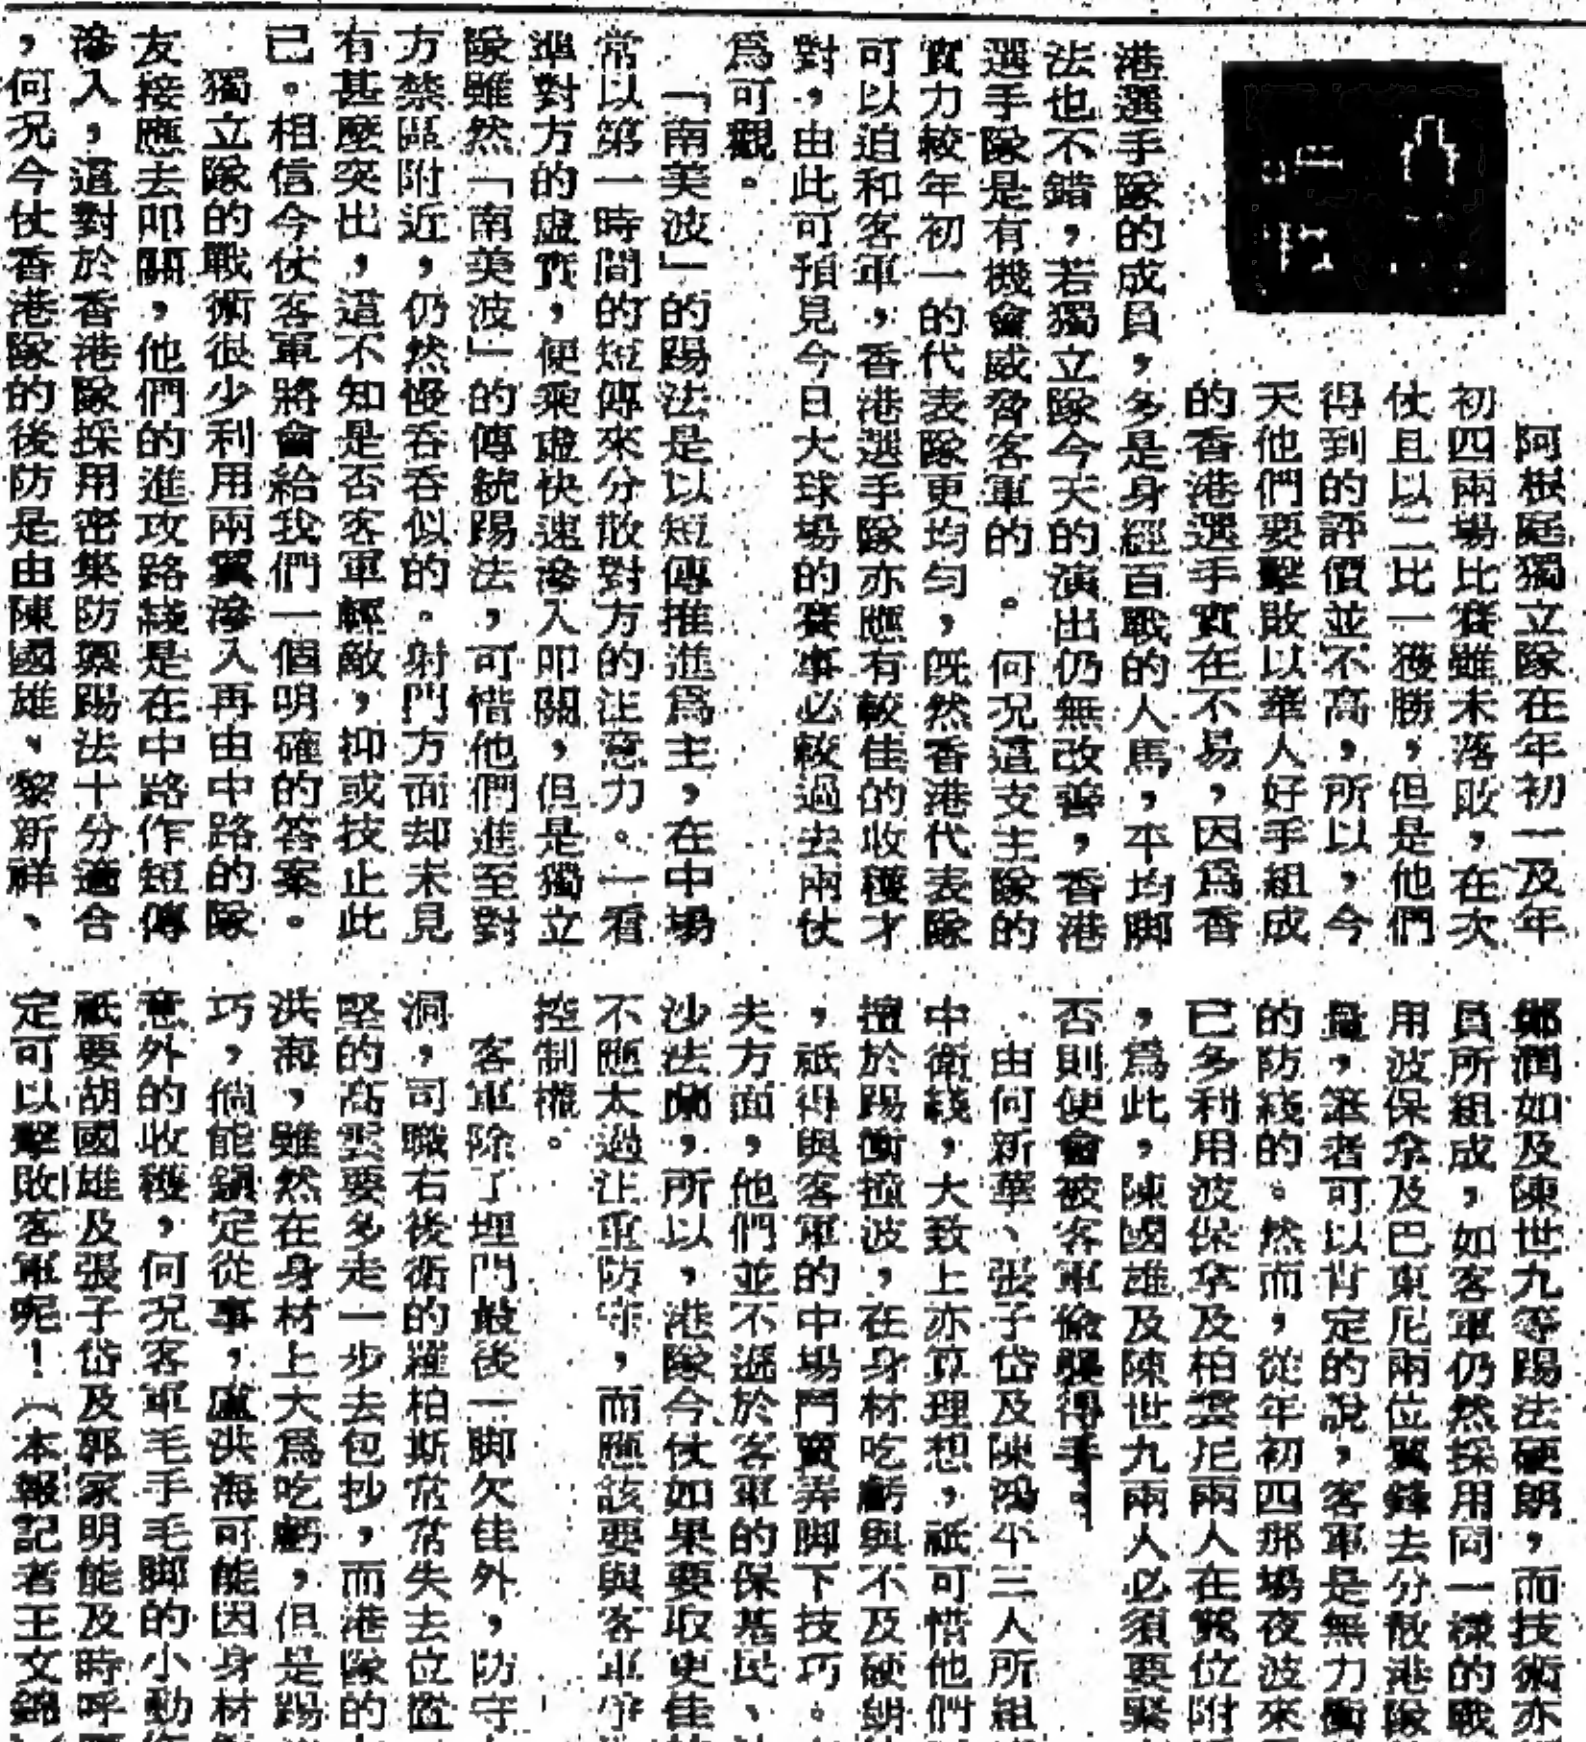 阿根庭獨立隊在年初一及年
初四兩場比賽雖未落敗，在次
仗且以二比一獲勝，但是他們
得到的評價並不高，所以，今
天他們要擊敗以華人好手組成
的香港選手實在不易，因爲香
港選手隊的成員，多是身經百戰的人馬，平均脚
法也不錯，若獨立隊今天的演出仍無改善，香港
選手隊是有機會威脅客軍的。何况這支主隊的
實力較年初一的代表隊更均勻，既然香港代表隊
可以迫和客軍，香港選手隊亦應有較佳的收穫才
對，由此可預見今日大球場的賽事必較過去兩仗
爲可觀。
「南美波」的踢法是以短傳推進爲主，在中場
常以第一時間的短傳來分散對方的注意力。一看
準對方的虛實，便乘虛快速滲入叩關，但是獨立
隊雖然「南美波」的傳統踢法，可惜他們進至對
方禁區附近，仍然慢吞吞似的。射門方面却未見
有甚麼突出，這不知是否客軍輕敵，抑或技止此
已。相信今仗客軍將會給我們一個明確的答案。
獨立隊的戰術很少利用兩翼滲入再由中路的隊
友接應去叩關，他們的進攻路綫是在中路作短傳
滲入，這對於香港隊採用密集防禦踢法十分適合
，何况今仗香港隊的後防是由陳國雄、黎新祥、
鄭潤如及陳世九等踢法硬朗，而技術亦
員所組成，如客軍仍然採用同一樣的戰
用波保拿及巴東尼兩位翼鋒去分散港隊
量，筆者可以肯定的說，客軍是無力衝
的防綫的。然而，從年初四那場夜波來
已多利用波保拿及柏雲尼兩人在翼位附
，爲此，陳國雄及陳世九兩人必須要緊
否則便會被客軍偸襲得手。
由何新華、張子岱及陳鴻平三人所組
中衛綫，大致上亦算理想，祇可惜他們
擅於踢衝撞波，在身材吃虧與不及硬朗
，祇得與客軍的中場鬥賣弄脚下技巧。
夫方面，他們並不遜於客軍的保基民、
沙法蘭，所以，港隊今仗如果要取更佳
不應太過注重防守，而應該要與客軍爭
控制權。
客軍除了埋門最後一脚欠佳外，防守
洞，司職右後衛的羅柏斯常常失去位置
堅的高雲要多走一步去包抄，而港隊的
洪海，雖然在身材上大爲吃虧，但是踢
巧，倘能鎭定從事，盧洪海可能因身材
意外的收穫，何况客軍毛手毛脚的小動
祇要胡國雄及張子岱及郭家明能及時呼
定可以擊敗客軍呢！（本報記者王文錦